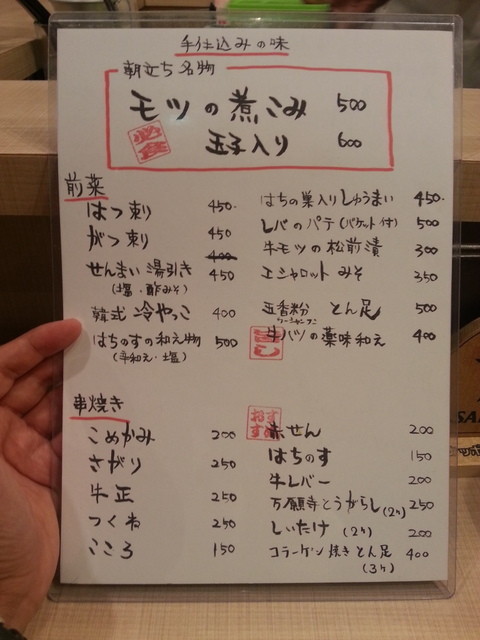 手仕込みの味
朝立ち名物
モツの煮こみ 500
必食 玉子入り 600
前菜
はつ刺 450
がつ刺 450
400
せんまい湯引き 450
(塩・酢みそ)
韓式 冷やっこ 400
はちのすの和え物 500
(辛和え・塩)
はちの巣入りしゅうまい 450
レバのパテ(バケット付) 500
牛モツの松前漬 300
エシャロット みそ 350
五香粉 とん足 500
ウーシャンフン
旨し
牛ハツの薬味和え 400
串焼き
こめかみ 200
さがり 250
牛正 250
つくね 250
こころ 150
おすすめ
赤せん 200
はちのす 150
牛レバー 200
万願寺とうがらし(2ヶ) 250
しいたけ (2ヶ) 200
コラーゲン焼き とん足 400
(3ヶ)